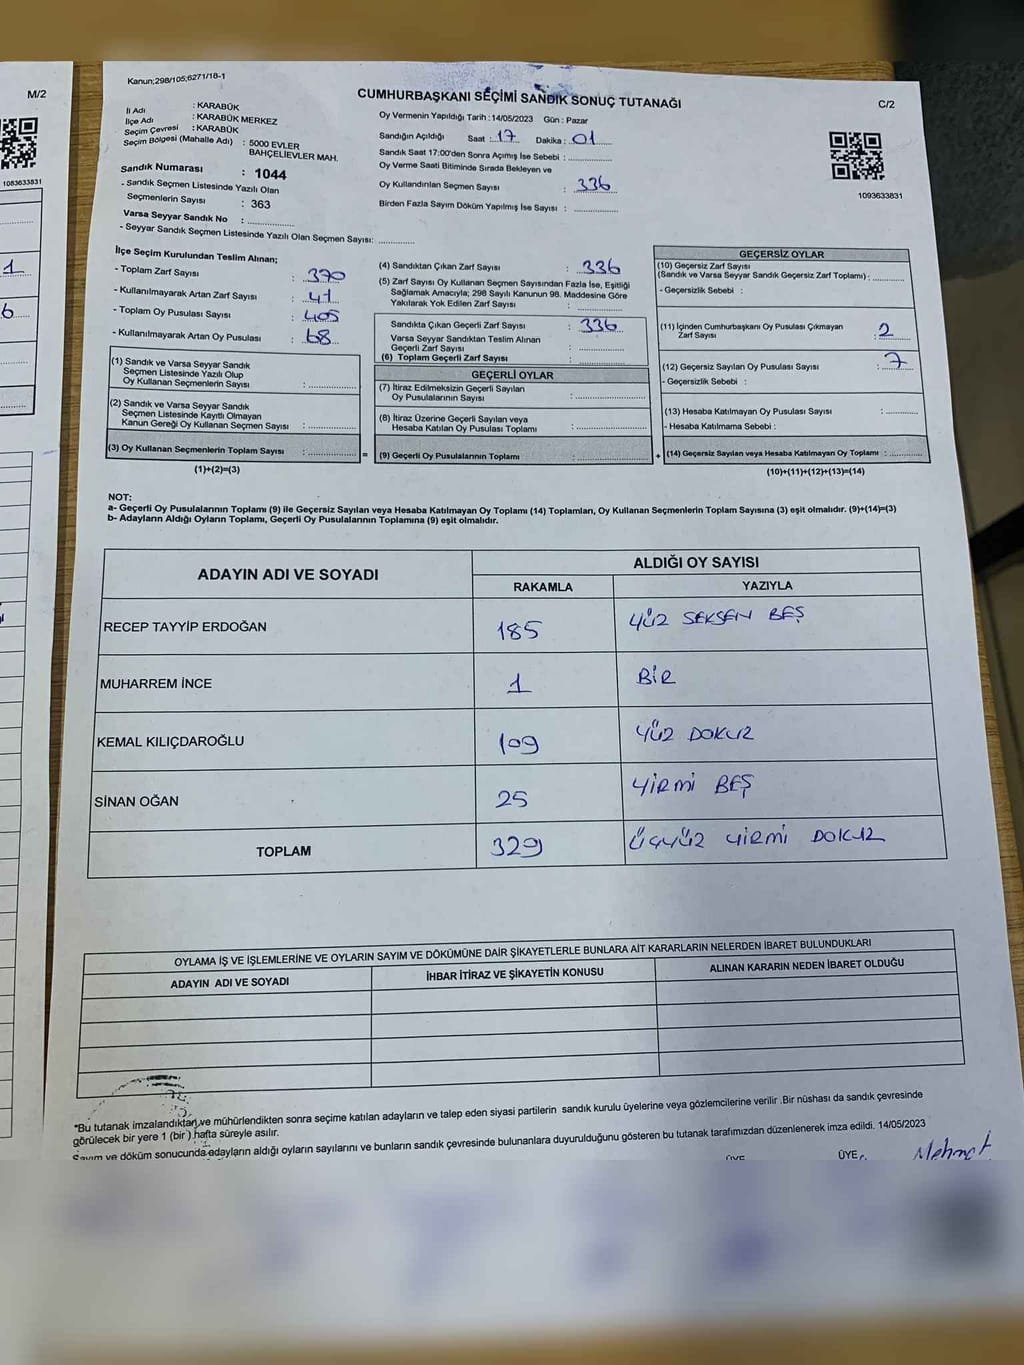 M/2
1083633831
1
6
Kanun;298/105;6271/18-1
CUMHURBAŞKANI SEÇİMİ SANDIK SONUÇ TUTANAĞI
C/2
İl Adı : KARABÜK
İlçe Adı : KARABÜK MERKEZ
Seçim Çevresi : KARABÜK
Seçim Bölgesi (Mahalle Adı) : 5000 EVLER
BAHÇELİEVLER MAH.
Sandık Numarası : 1044
- Sandık Seçmen Listesinde Yazılı Olan
Seçmenlerin Sayısı : 363
Varsa Seyyar Sandık No : ...............
- Seyyar Sandık Seçmen Listesinde Yazılı Olan Seçmen Sayısı: ............
Oy Vermenin Yapıldığı Tarih : 14/05/2023 Gün : Pazar
Sandığın Açıldığı Saat : 17 Dakika : 01
Sandık Saat 17:00'den Sonra Açımış İse Sebebi : ...............
Oy Verme Saati Bitiminde Sırada Bekleyen ve
Oy Kullandırılan Seçmen Sayısı : 336
Birden Fazla Sayım Döküm Yapılmış İse Sayısı : ...............
1093633831
İlçe Seçim Kurulundan Teslim Alınan;
- Toplam Zarf Sayısı : 370
- Kullanılmayarak Artan Zarf Sayısı : 41
- Toplam Oy Pusulası Sayısı : 405
- Kullanılmayarak Artan Oy Pusulası : 68
(1) Sandık ve Varsa Seyyar Sandık
Seçmen Listesinde Yazılı Olup
Oy Kullanan Seçmenlerin Sayısı : ...............
(2) Sandık ve Varsa Seyyar Sandık
Seçmen Listesinde Kayıtlı Olmayan
Kanun Gereği Oy Kullanan Seçmen Sayısı : ...............
(3) Oy Kullanan Seçmenlerin Toplam Sayısı : ............... =
(1)+(2)=(3)
(4) Sandıktan Çıkan Zarf Sayısı : 336
(5) Zarf Sayısı Oy Kullanan Seçmen Sayısından Fazla İse, Eşitliği
Sağlamak Amacıyla; 298 Sayılı Kanunun 98. Maddesine Göre
Yakılarak Yok Edilen Zarf Sayısı : ...............
Sandıkta Çıkan Geçerli Zarf Sayısı : 336
Varsa Seyyar Sandıktan Teslim Alınan
Geçerli Zarf Sayısı : ...............
(6) Toplam Geçerli Zarf Sayısı : ...............
GEÇERLİ OYLAR
(7) İtiraz Edilmeksizin Geçerli Sayılan
Oy Pusulasının Sayısı : ...............
(8) İtiraz Üzerine Geçerli Sayılan veya
Hesaba Katılan Oy Pusulası Toplamı : ...............
(9) Geçerli Oy Pusulalarının Toplamı : ............... +
GEÇERSİZ OYLAR
(10) Geçersiz Zarf Sayısı
(Sandık ve Varsa Seyyar Sandık Geçersiz Zarf Toplamı) : ............
- Geçersizlik Sebebi :
(11) İçinden Cumhurbaşkanı Oy Pusulası Çıkmayan
Zarf Sayısı : 2
(12) Geçersiz Sayılan Oy Pusulası Sayısı : 7
- Geçersizlik Sebebi :
(13) Hesaba Katılmayan Oy Pusulası Sayısı : ............
- Hesaba Katılmama Sebebi :
(14) Geçersiz Sayılan veya Hesaba Katılmayan Oy Toplamı : ............
(10)+(11)+(12)+(13)=(14)
NOT:
a- Geçerli Oy Pusulalarının Toplamı (9) ile Geçersiz Sayılan veya Hesaba Katılmayan Oy Toplamı (14) Toplamları, Oy Kullanan Seçmenlerin Toplam Sayısına (3) eşit olmalıdır. (9)+(14)=(3)
b- Adayların Aldığı Oyların Toplamı, Geçerli Oy Pusulalarının Toplamına (9) eşit olmalıdır.
ADAYIN ADI VE SOYADI
ALDIĞI OY SAYISI
RAKAMLA YAZIYLA
RECEP TAYYİP ERDOĞAN 185 YÜZ SEKSEN BEŞ
MUHARREM İNCE 1 BİR
KEMAL KILIÇDAROĞLU 109 YÜZ DOKUZ
SİNAN OĞAN 25 YİRMİ BEŞ
TOPLAM 329 ÜÇYÜZ YİRMİ DOKUZ
OYLAMA İŞ VE İŞLEMLERİNE VE OYLARIN SAYIM VE DÖKÜMÜNE DAİR ŞİKAYETLERLE BUNLARA AİT KARARLARIN NELERDEN İBARET BULUNDUKLARI
ADAYIN ADI VE SOYADI İHBAR İTİRAZ VE ŞİKAYETİN KONUSU ALINAN KARARIN NEDEN İBARET OLDUĞU
*Bu tutanak imzalandıktan ve mühürlendikten sonra seçime katılan adayların ve talep eden siyasi partilerin sandık kurulu üyelerine veya gözlemcilerine verilir .Bir nüshası da sandık çevresinde
görülecek bir yere 1 (bir ) hafta süreyle asılır.
Sayım ve döküm sonucunda adayların aldığı oyların sayılarını ve bunların sandık çevresinde bulunanlara duyurulduğunu gösteren bu tutanak tarafımızdan düzenlenerek imza edildi. 14/05/2023
ÜYE ÜYE Mehmet